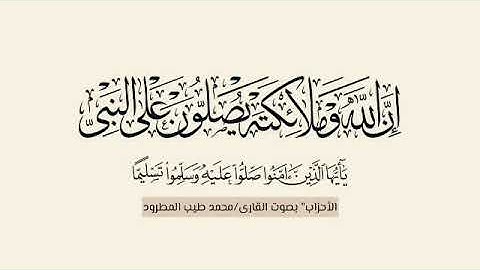 إن الله وملائكته يصلون على النبي
يَٰٓأَيُّهَا الَّذِينَ ءَامَنُوا صَلُّوا عَلَيْهِ وَسَلِّمُوا تَسْلِيمًا
الأحزاب" بصوت القارئ/محمد طيب المطرود